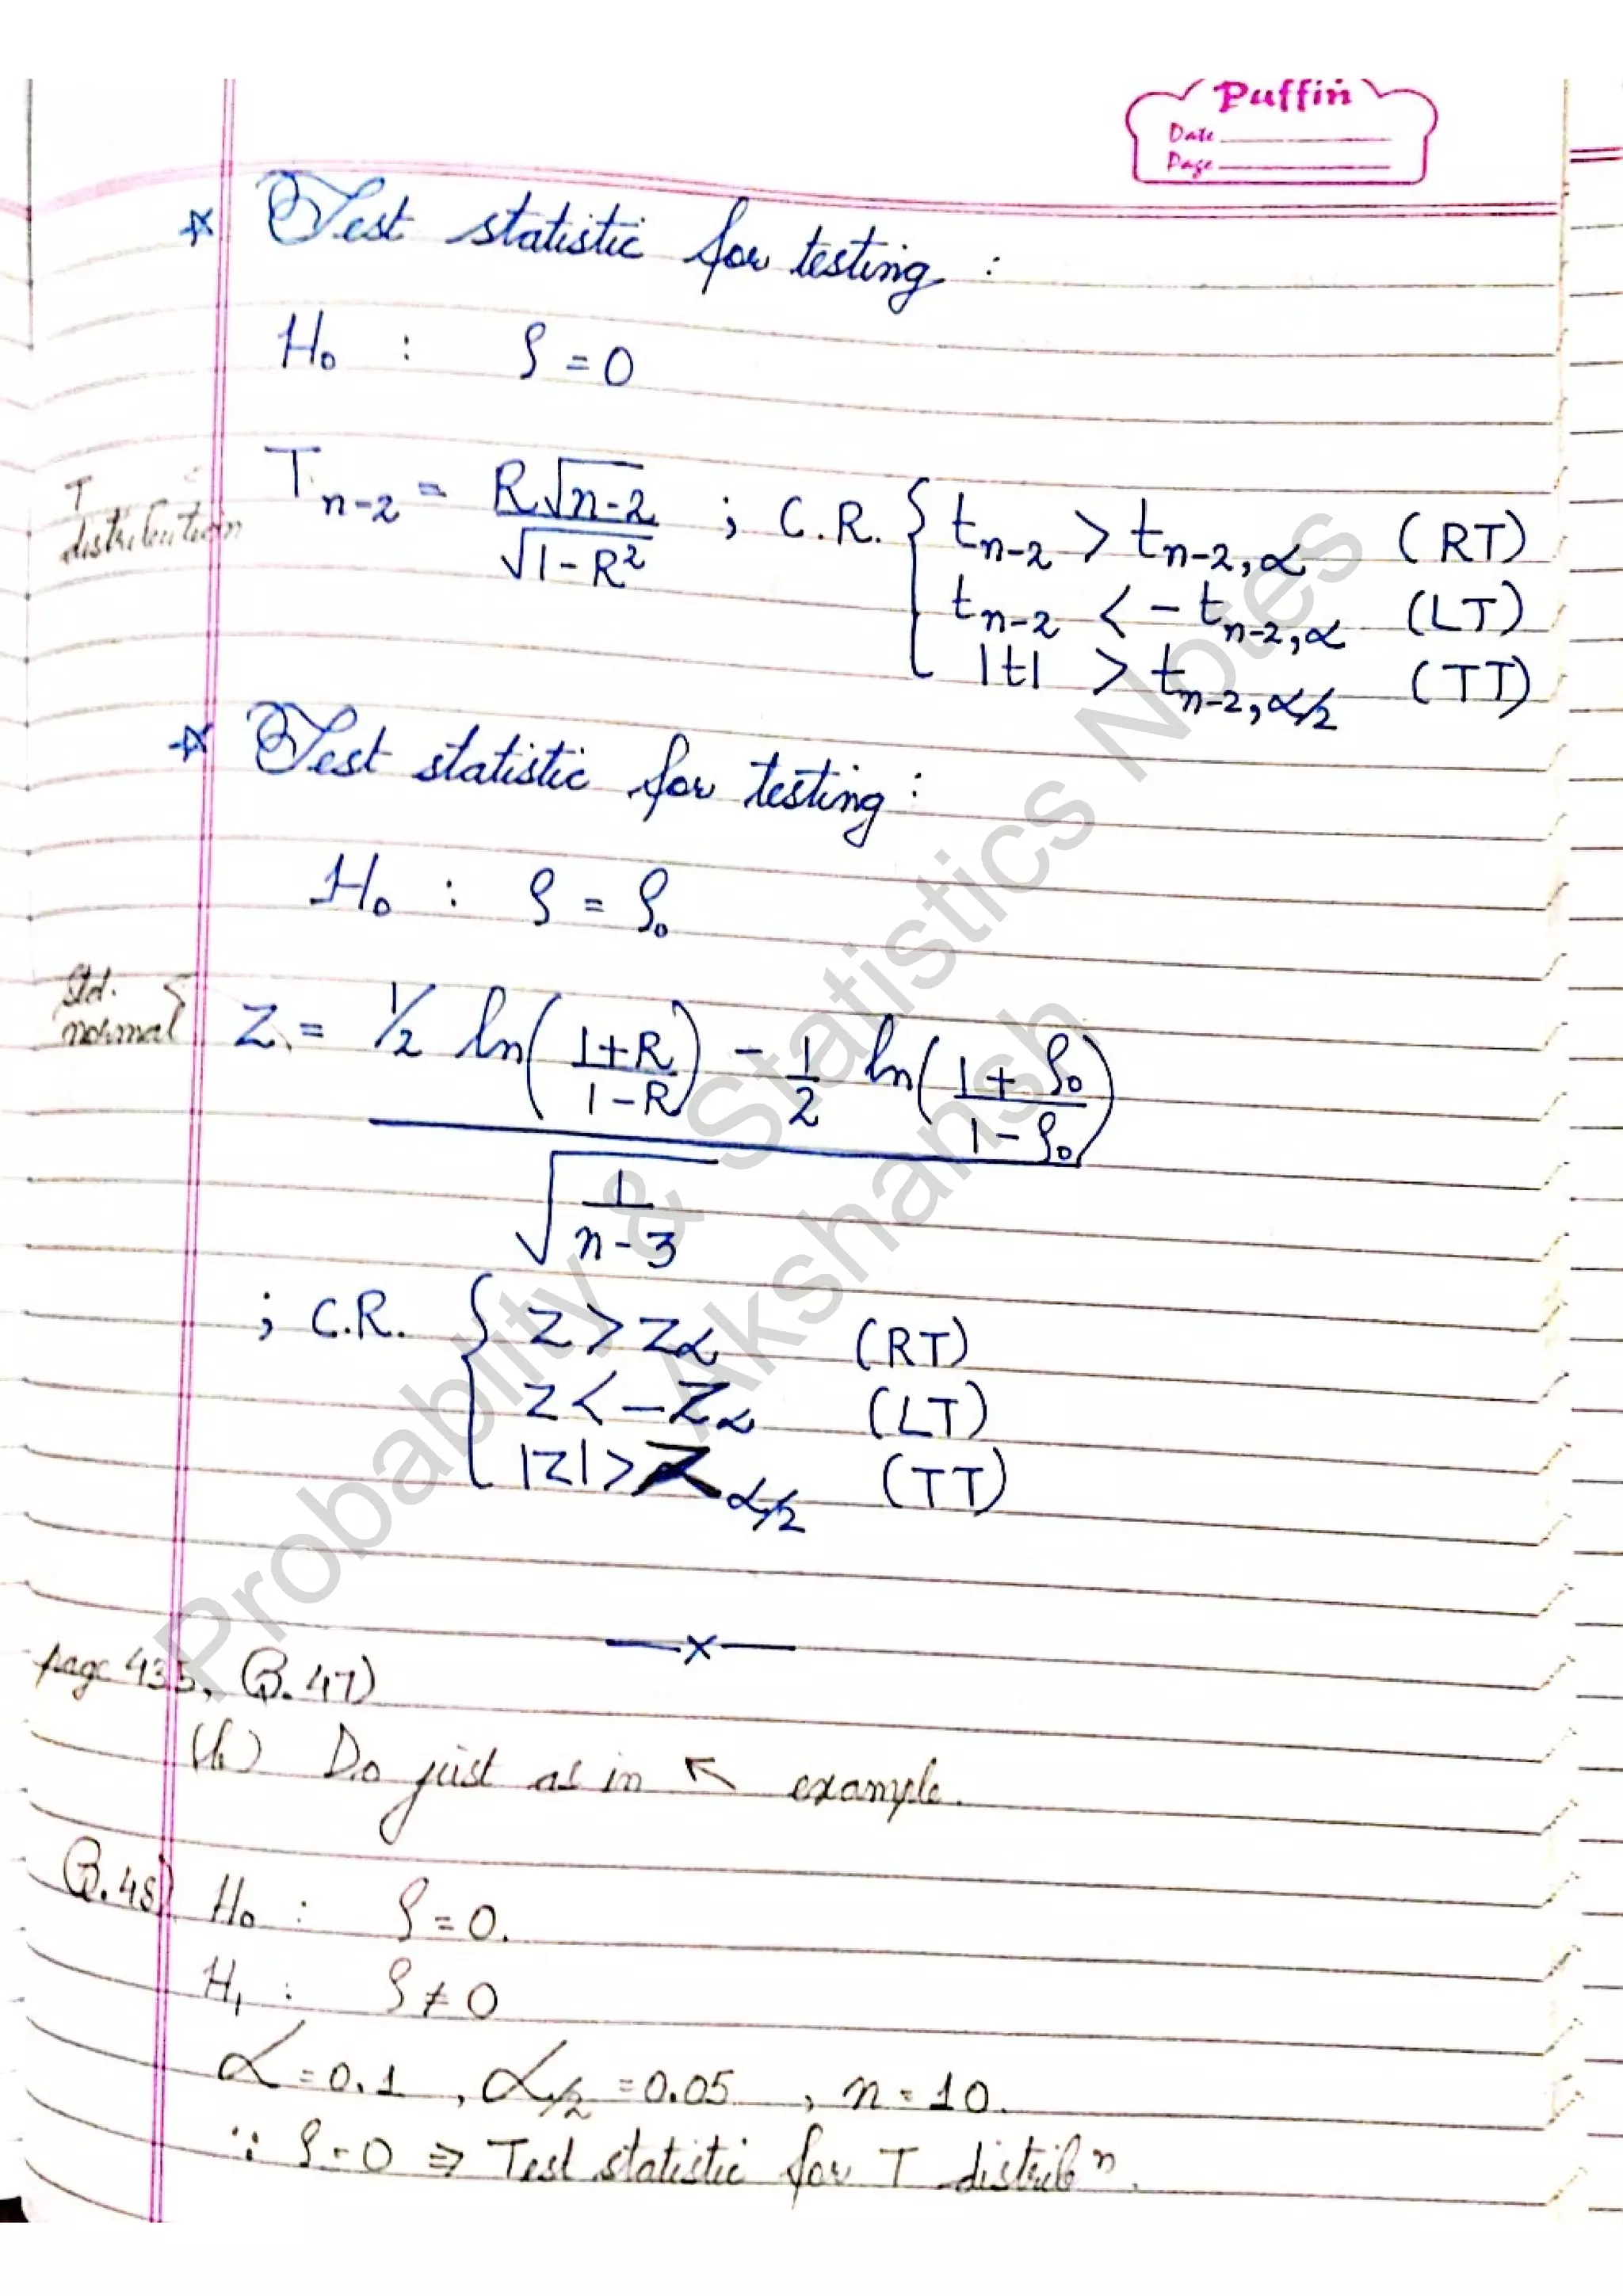 Puffin
Date
Page
☆ Test statistic for testing :
H₀ : ρ = 0
T distribution
Tₙ₋₂ = R√(n-2) / √(1-R²) ; C.R. { tₙ₋₂ > tₙ₋₂,α (RT)
tₙ₋₂ < - tₙ₋₂,α (LT)
|t| > tₙ₋₂,α/2 (TT)
☆ Test statistic for testing :
H₀ : ρ = ρ₀
Std. normal { Z = (1/2 ln((1+R)/(1-R)) - 1/2 ln((1+ρ₀)/(1-ρ₀))) / √(1/(n-3))
; C.R. { z > zα (RT)
z < -zα (LT)
|z| > z α/2 (TT)
—x—
page 435, Q.47)
(b) Do just as in ↖ example.
Q.48) H₀ : ρ = 0.
H₁ : ρ ≠ 0
α = 0.1 , α/2 = 0.05 , n = 10.
∵ ρ = 0 ⇒ Test statistic for T distribⁿ.
Probablity & Statistics Notes
Akshansh